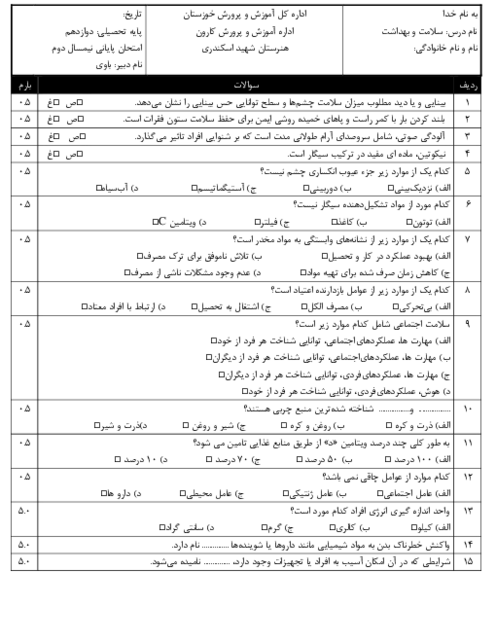 به نام خدا
نام درس: سلامت و بهداشت
نام و نام خانوادگی:
اداره کل آموزش و پرورش خوزستان
اداره آموزش و پرورش کارون
هنرستان شهید اسکندری
تاریخ:
پایه تحصیلی: دوازدهم
امتحان پایانی نیمسال دوم
نام دبیر: باوی
ردیف سوالات بارم
۱ بینایی و یا دید مطلوب میزان سلامت چشم‌ها و سطح توانایی حس بینایی را نشان می‌دهد. □ص □غ ۰.۵
۲ بلند کردن بار با کمر راست و پاهای خمیده روشی ایمن برای حفظ سلامت ستون فقرات است. □ص □غ ۰.۵
۳ آلودگی صوتی، شامل سروصدای آرام طولانی مدت است که بر شنوایی افراد تاثیر می‌گذارد. □ص □غ ۰.۵
۴ نیکوتین، ماده ای مفید در ترکیب سیگار است. □ص □غ ۰.۵
۵ کدام یک از موارد زیر جزء عیوب انکساری چشم نیست؟ ۰.۵
الف) نزدیک‌بینی□ ب) دوربینی□ ج) آستیگماتیسم□ د) آب‌سیاه□
۶ کدام مورد از مواد تشکیل‌دهنده سیگار نیست؟ ۰.۵
الف) توتون□ ب) کاغذ□ ج) فیلتر□ د) ویتامین C□
۷ کدام یک از موارد زیر از نشانه‌های وابستگی به مواد مخدر است؟ ۰.۵
الف) بهبود عملکرد در کار و تحصیل□ ب) تلاش ناموفق برای ترک مصرف□
ج) کاهش زمان صرف شده برای تهیه مواد□ د) عدم وجود مشکلات ناشی از مصرف□
۸ کدام یک از موارد زیر از عوامل بازدارنده اعتیاد است؟ ۰.۵
الف) بی‌تحرکی□ ب) مصرف الکل□ ج) اشتغال به تحصیل□ د) ارتباط با افراد معتاد□
۹ سلامت اجتماعی شامل کدام موارد زیر است؟ ۰.۵
الف) مهارت ها، عملکردهای‌اجتماعی، توانایی شناخت هر فرد از خود□
ب) مهارت ها، عملکردهای‌اجتماعی، توانایی شناخت هر فرد از دیگران□
ج) مهارت ها، عملکردهای‌فردی، توانایی شناخت هر فرد از دیگران□
د) هوش، عملکردهای‌فردی، توانایی شناخت هر فرد از خود□
۱۰ ............. و............. شناخته شده‌ترین منبع چربی هستند؟ ۰.۵
الف) ذرت و کره □ ب) روغن و کره □ ج) شیر و روغن □ د)ذرت و شیر□
۱۱ به طور کلی چند درصد ویتامین «د» از طریق منابع غذایی تامین می شود؟ ۰.۵
الف) ۱۰۰ درصد □ ب) ۵۰ درصد □ ج) ۷۰ درصد □ د) ۱۰ درصد □
۱۲ کدام موارد از عوامل چاقی نمی باشد؟ ۰.۵
الف) عامل اجتماعی□ ب) عامل ژنتیکی□ ج) عامل محیطی□ د) دارو ها□
۱۳ واحد اندازه گیری انرژی افراد کدام مورد است؟ ۵.۰
الف) کیلو□ ب) کالری□ ج) گرم□ د) سانتی گراد□
۱۴ واکنش خطرناک بدن به مواد شیمیایی مانند داروها یا شوینده‌ها ............. نام دارد. ۵.۰
۱۵ شرایطی که در آن امکان آسیب به افراد یا تجهیزات وجود دارد، ............. نامیده می‌شود. ۵.۰